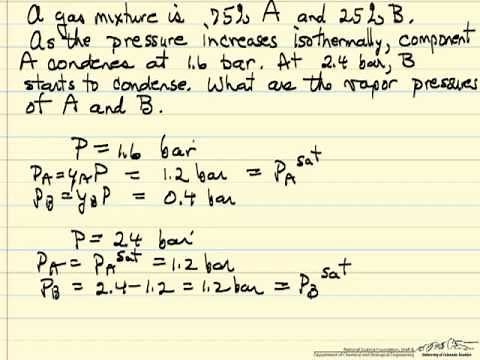 A gas mixture is 75% A and 25% B.
As the pressure increases isothermally, component
A condenes at 1.6 bar. At 2.4 bar, B
starts to condense. What are the vapor pressures
of A and B.
P = 1.6 bar
PA = yA P = 1.2 bar = PA^sat
PB = yB P = 0.4 bar
P = 2.4 bar
PA = PA^sat = 1.2 bar
PB = 2.4 - 1.2 = 1.2 bar = PB^sat
Department of Chemical and Biological Engineering
University of Colorado Boulder